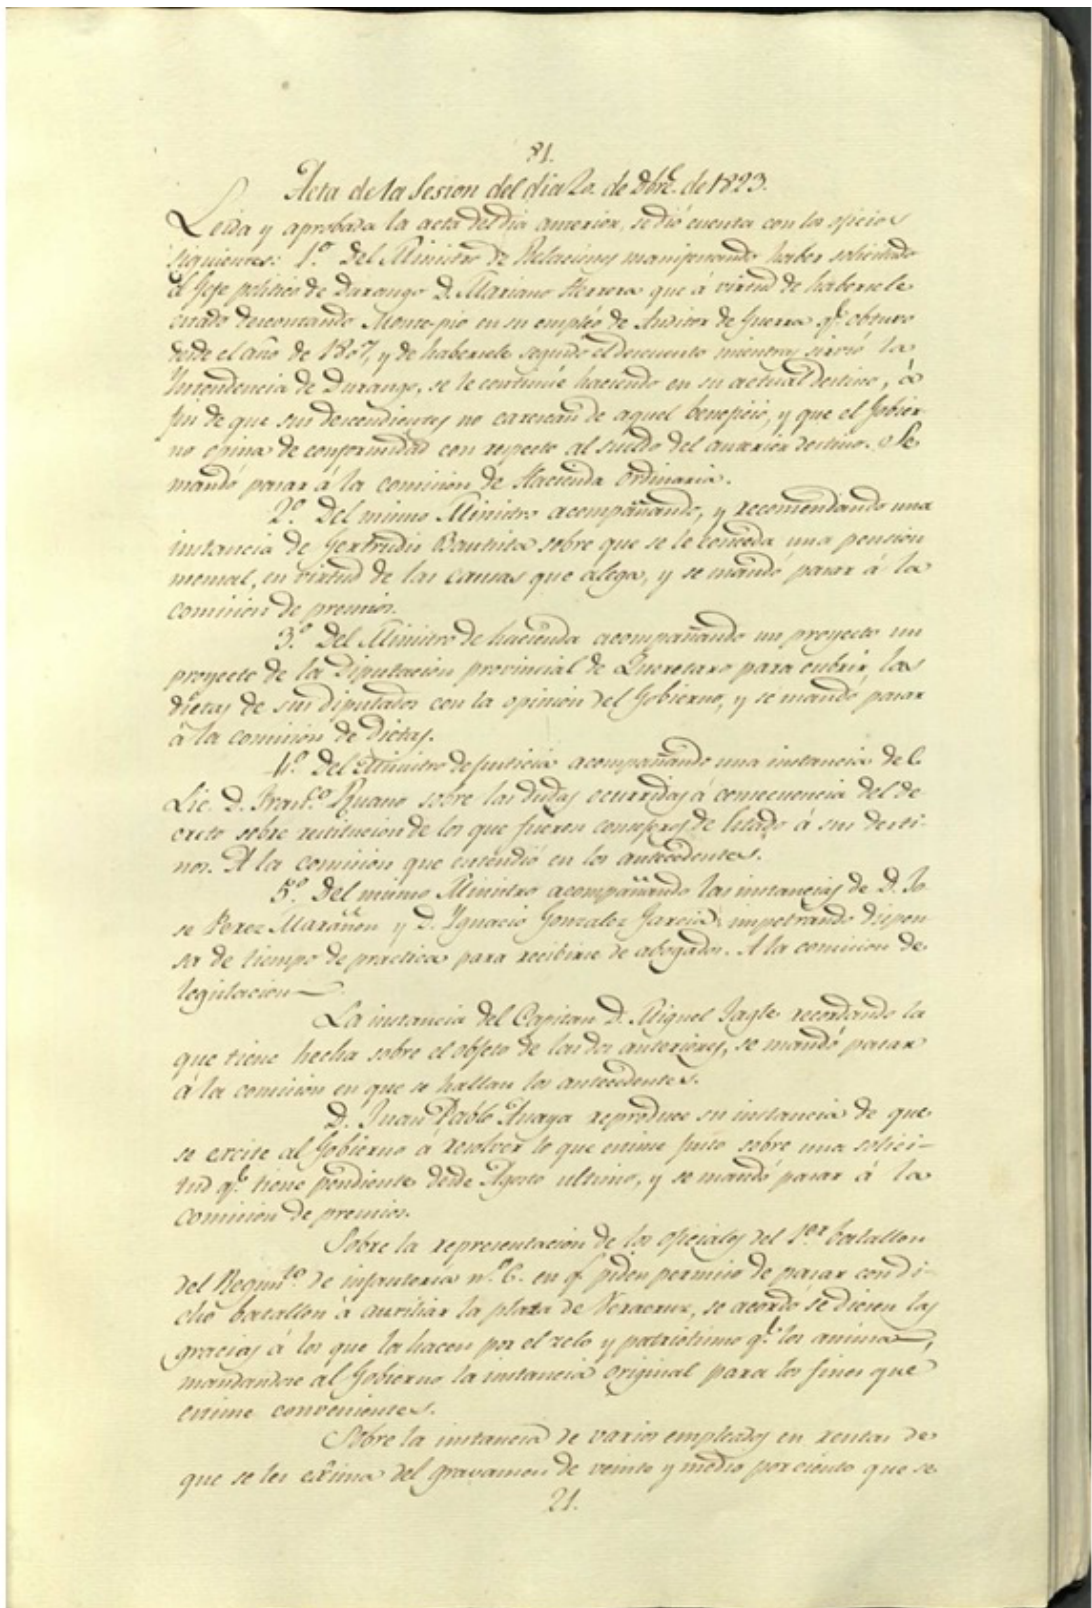 81.
Acta de la Sesion del dia 2o. de 8bre. de 1823.
Leida y aprobada la acta del dia anterior, se dió cuenta con los oficios
siguientes: 1.º Del Ministro de Relaciones manifestando haber solicitado
el Gefe politico de Durango D. Mariano Herrera que á virtud de habersele
estado descontando Monte-pio en su empléo de Auditor de Guerra q.e obtuvo
desde el año de 1807, y de habersele seguido el descuento mientras sirvió la
Yntendencia de Durango, se le continúe haciendo en su actual destino, á
fin de que sus descendientes no carescan de aquel beneficio, y que el Gobier-
no opina de conformidad con respecto al sueldo del anterior destino. Se
mandó pasar á la comision de Hacienda ordinaria.
2.º Del mismo Ministro acompañando, y recomendando una
instancia de Gertrudis Bautista sobre que se le conceda una pension
mensal, en virtud de las causas que alega, y se mandó pasar á la
comision de premios.
3.º Del Ministro de hacienda acompañando un proyecto un
proyecto de la Diputacion provincial de Queretaro para cubrir las
dietas de sus diputados con la opinion del Gobierno, y se mandó pasar
á la comision de Dietas.
4.º Del Ministro de Justicia acompañando una instancia del
Lic. D. Fran.co sobre las dudas ocurridas á consecuencia del de-
creto sobre restitucion de los que fueren consejeros de Estado á sus desti-
nos. A la comision que entendió en los antecedentes.
5.º Del mismo Ministro acompañando las instancias de D. Jo-
se Perez Marañon y D. Ygnacio Gonzalez Garcia impetrando dispen-
sa de tiempo de práctica para recibirse de abogados. A la comision de
legislacion
La instancia del Capitan D. Miguel Tagle recordando la
que tiene hecha sobre el objeto de las dos anteriores, se mandó pasar
á la comision en que se hallan los antecedentes.
D. Juan Pablo Anaya reproduce su instancia de que
se excite al Gobierno á resolver lo que estime justo sobre una solici-
tud q.e tiene pendiente desde Agosto ultimo, y se mandó pasar á la
comision de premios.
Sobre la representacion de los oficiales del 1.er batallon
del Regim.to de infanteria n.º 6. en q.e piden permiso de pasar con di-
cho batallon á auxiliar la plaza de Veracruz, se acordó se diesen las
gracias á los que la hacen por el zelo y patriotismo q.e los anima,
mandandose al Gobierno la instancia original para los fines que
estime convenientes.
Sobre la instancia de varios empleados en rentas de
que se les exima del gravamen de veinte y medio por ciento que se
21.